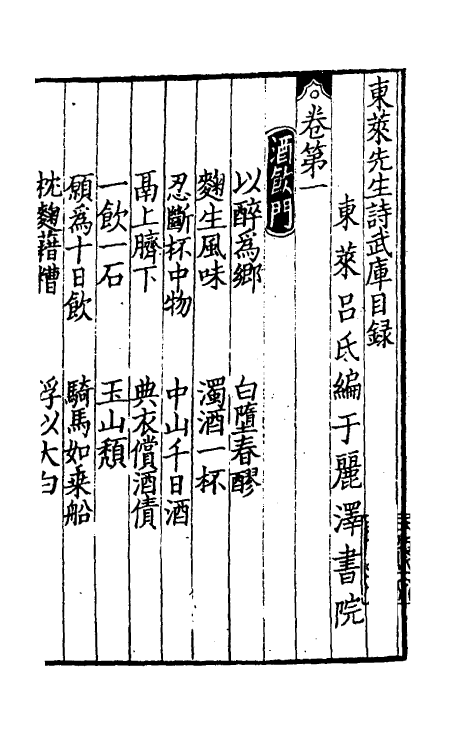 東萊先生詩武庫目録
東萊呂氏編于麗澤書院
卷第一
酒飲門
以醉為鄉 白墮春醪
麴生風味 濁酒一杯
忍斷杯中物 中山千日酒
鬲上臍下 典衣償酒債
一飲一石 玉山頹
願為十日飲 騎馬如乘船
枕麴藉糟 浮以大白